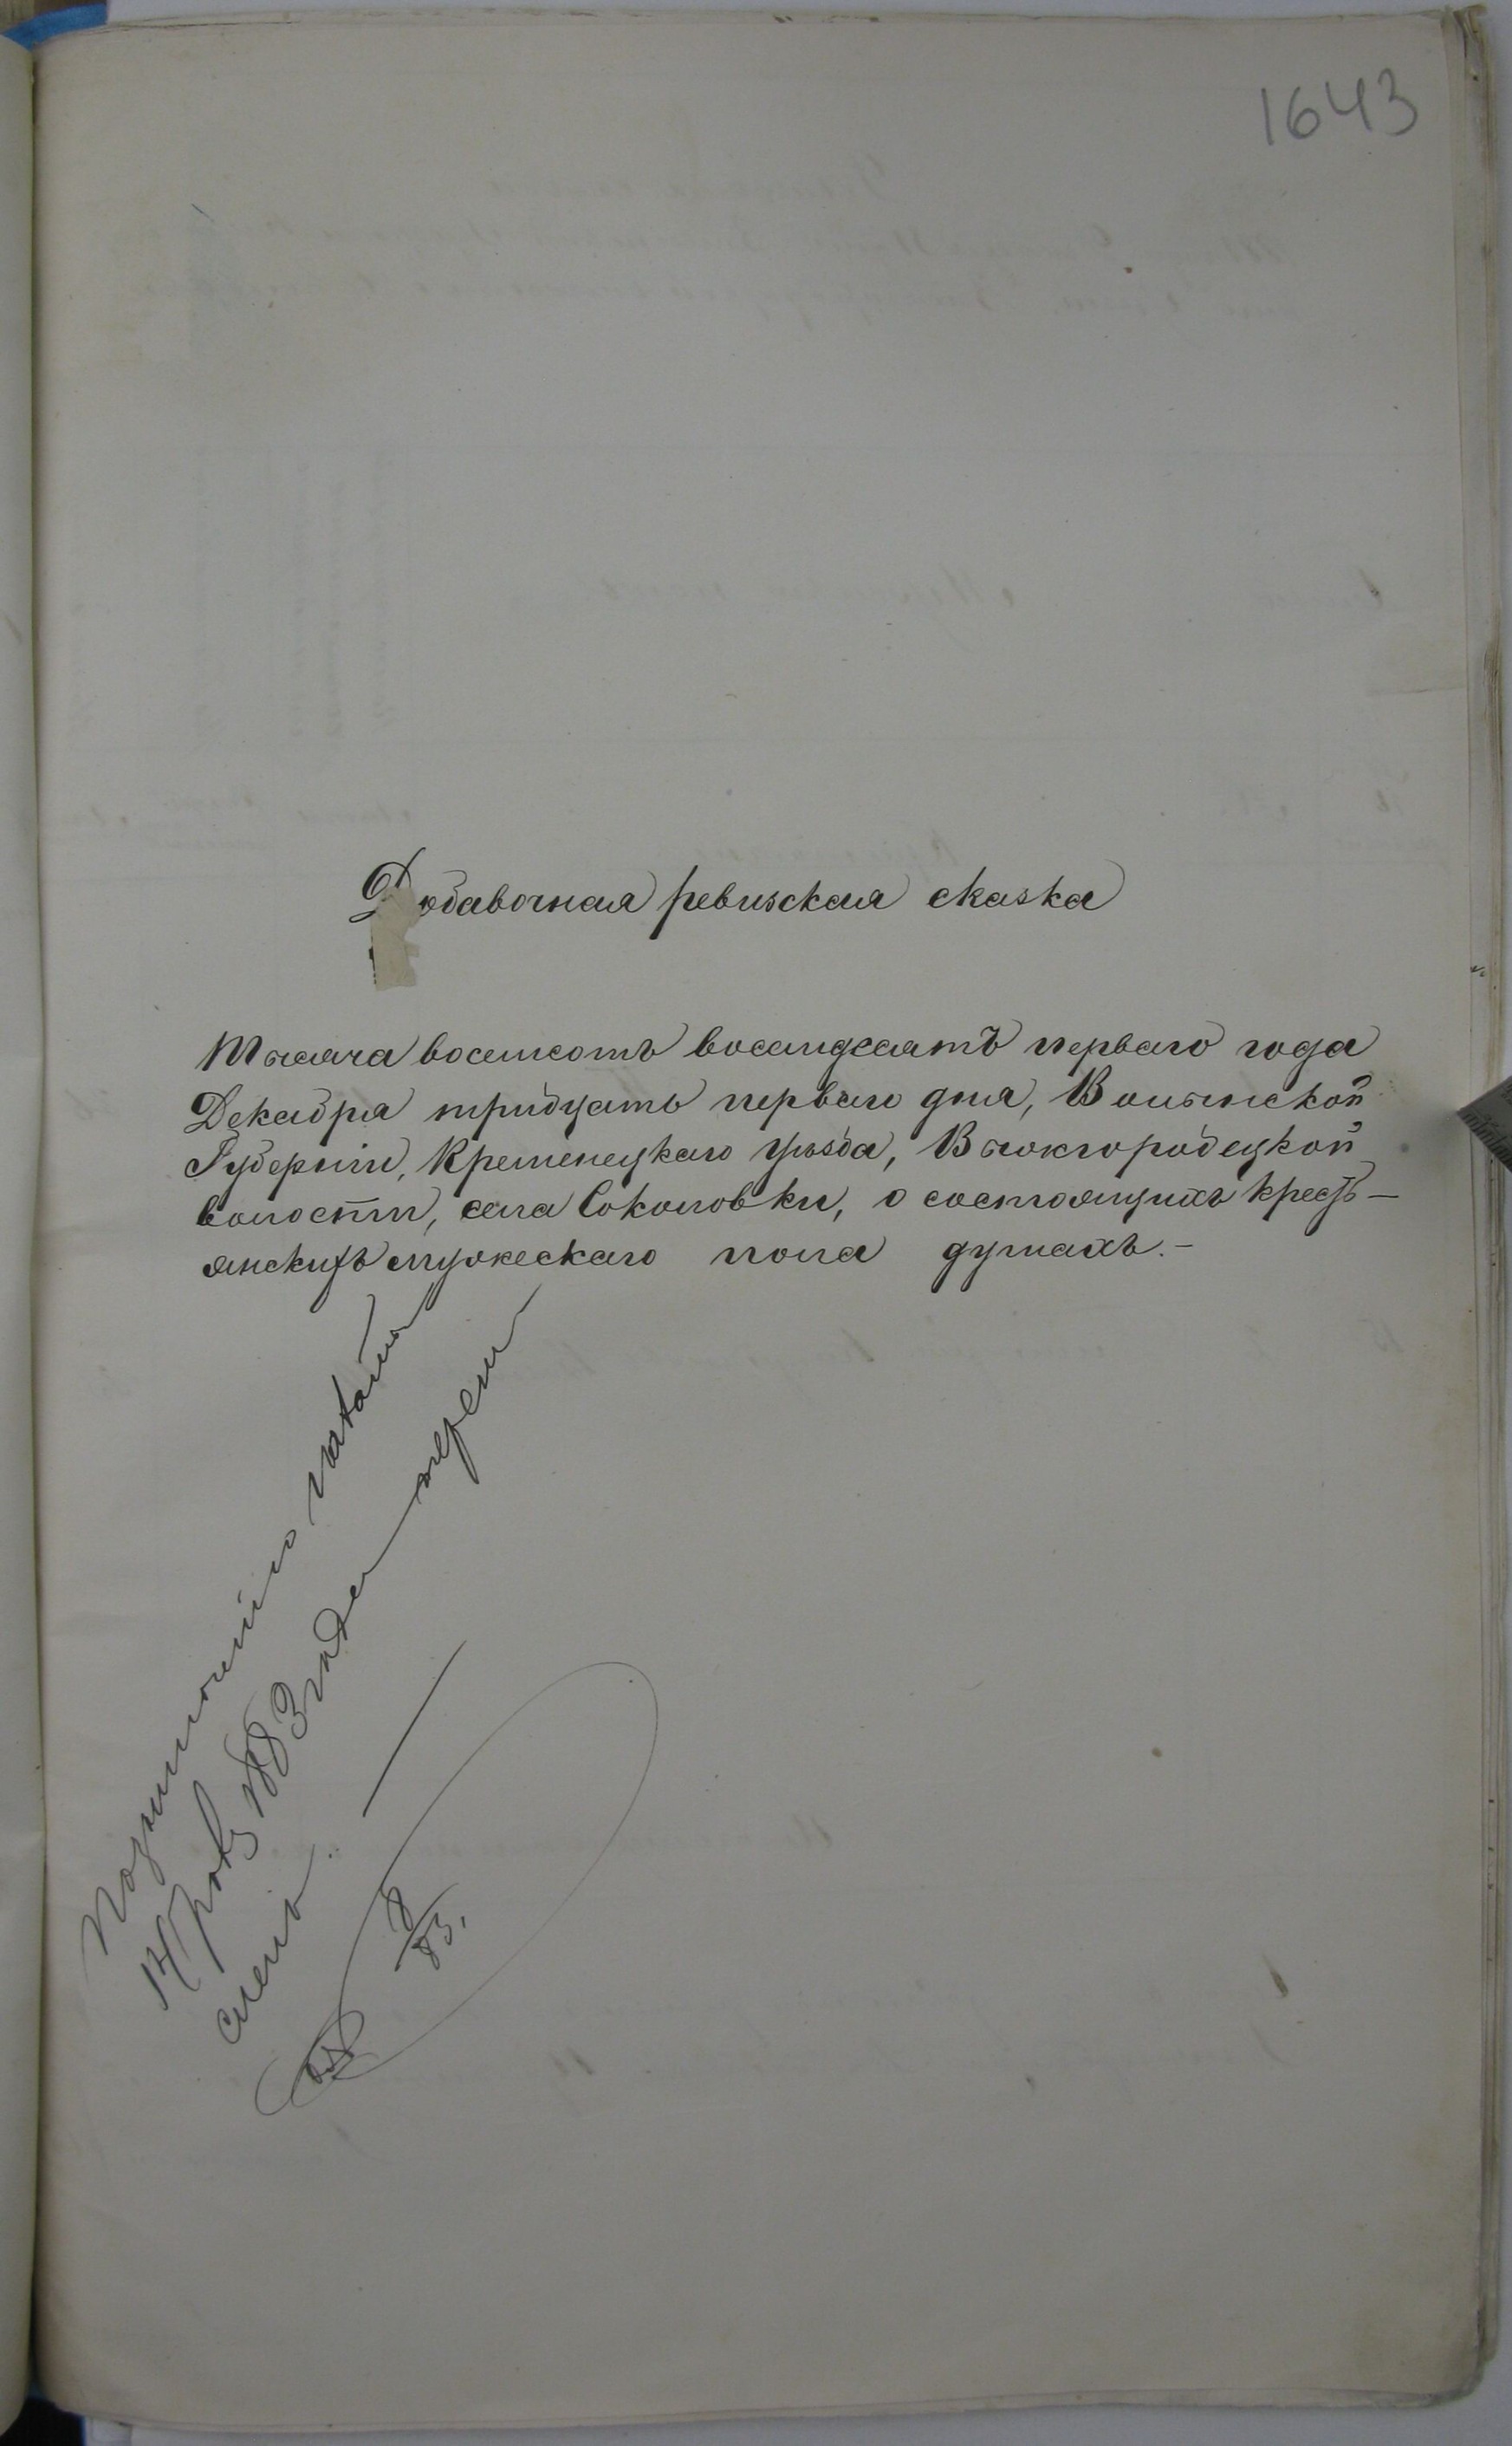 1643
Добавочная ревизская сказка
Тысяча восемсотъ восемдесятъ перваго года
Декабря тридцать перваго дня, Волынской
Губерніи, Кременецкаго уѣзда, Вышгородецкой
волости, села Соколовки, о состоящихъ крестъ-
янскихъ мужескаго пола душахъ.-
По
1883 года